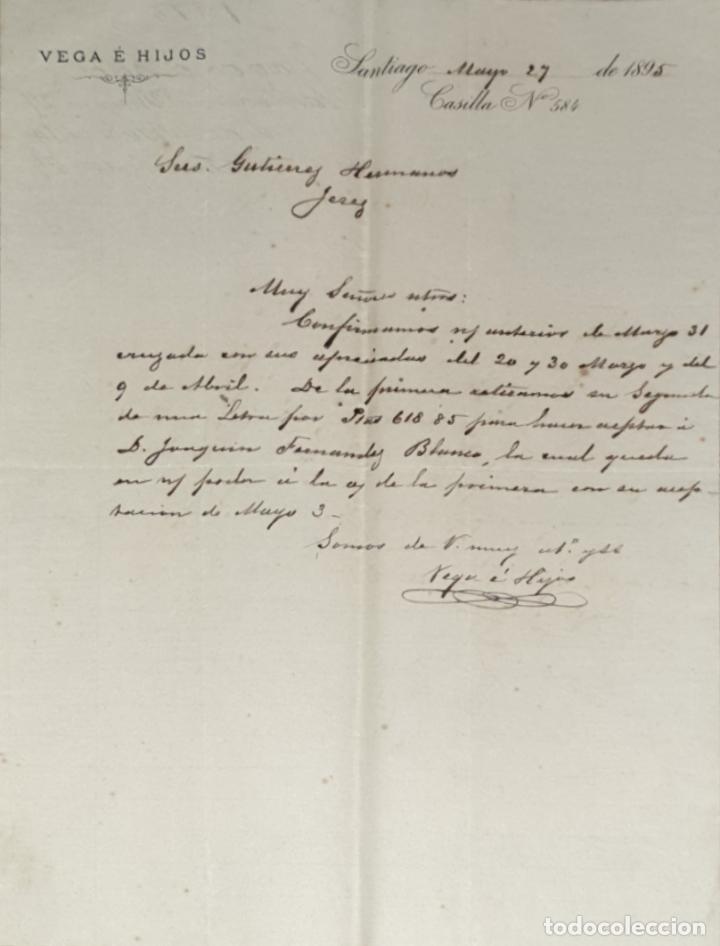 VEGA É HIJOS
Santiago Mayo 27 de 1895
Casilla No 584
Sres. Gutierrez Hermanos
Jerez
Muy Señores ntros:
Confirmamos n/ anterior de Marzo 31
cruzada con sus apreciadas del 20 y 30 Marzo y del
9 de Abril. De la primera retiramos su Segunda
de una Letra por Ptas 618 85 para hacer aceptar á
D. Joaquin Fernandez Blanco, la cual queda
en n/ poder á la o/ de la primera con su acep-
tacion de Mayo 3_
Somos de V. muy att. y SS
Vega é Hijos
todocoleccion